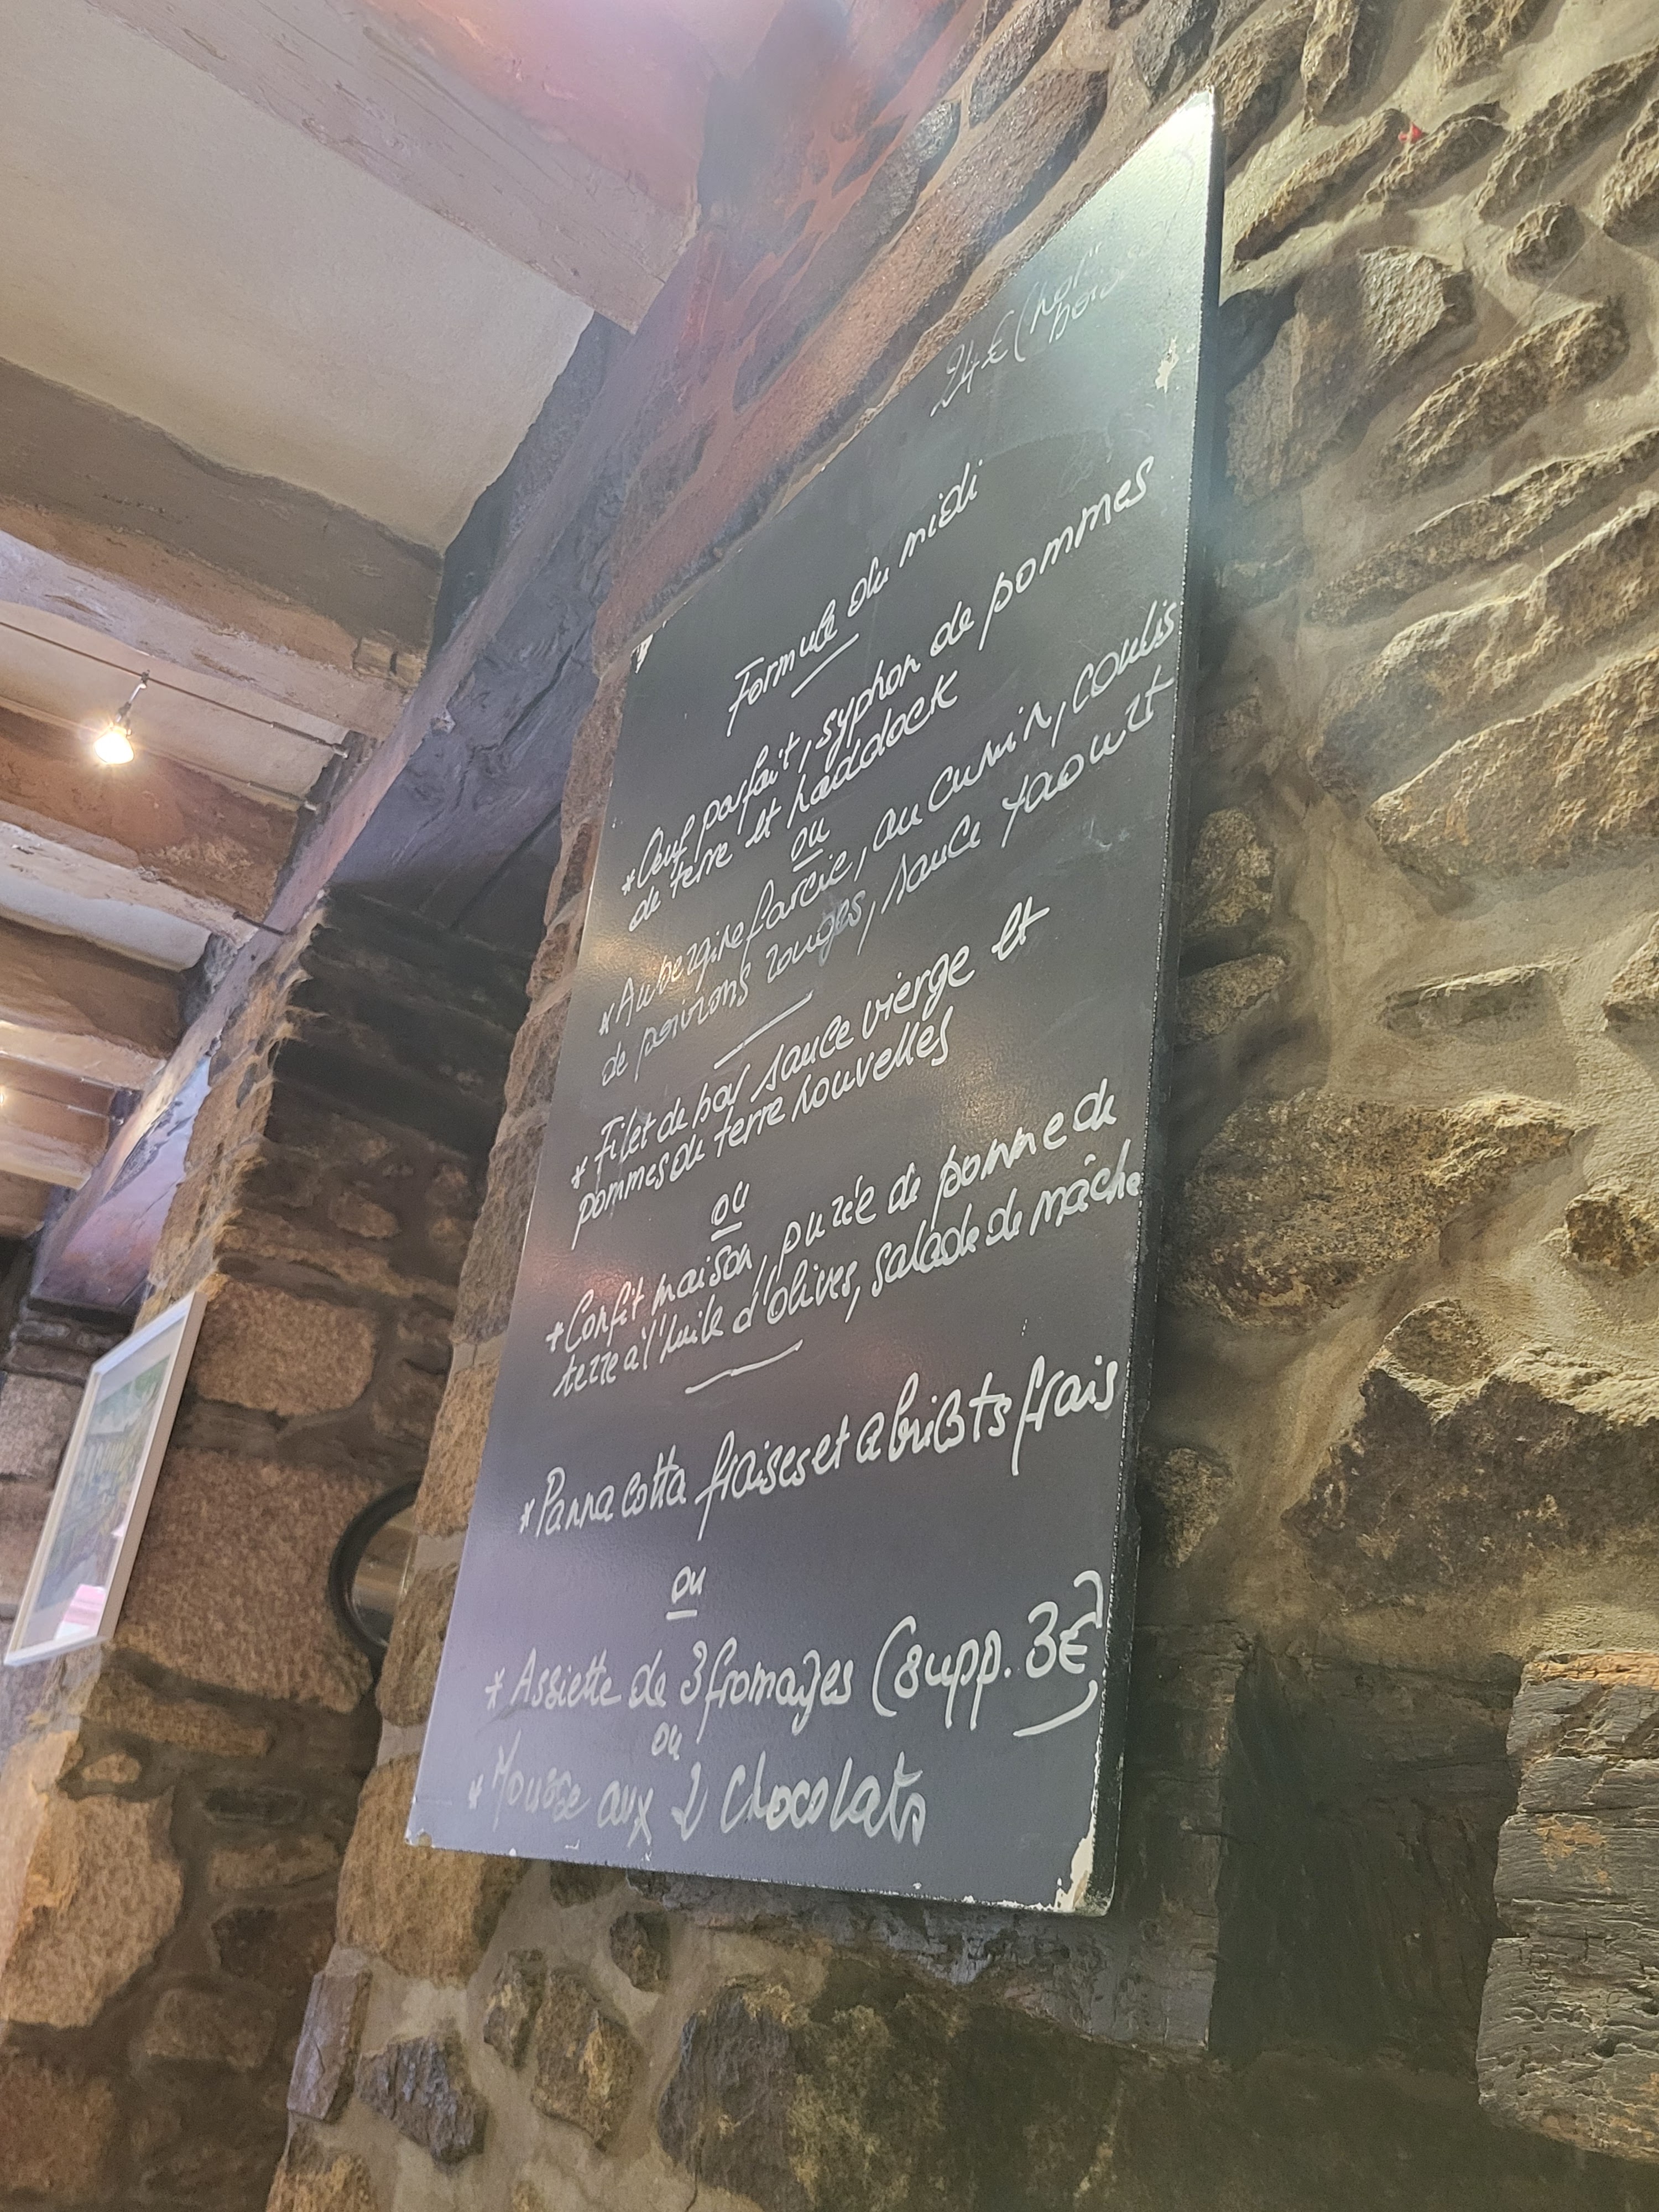 24€ (hors
boissons
Formule du midi
* Oeuf parfait, syphon de pommes
de terre et haddock
ou
* Aubergine farcie, au cumin, coulis
de poivrons rouges, sauce yaourt
* Filet de bar sauce vierge et
pommes de terre nouvelles
ou
* Confit maison, purée de pomme de
terre à l'huile d'olives, salade de mâche
* Panna cotta fraises et abricots frais
ou
* Assiette de 3 fromages (supp. 3€)
ou
* Mousse aux 2 Chocolats